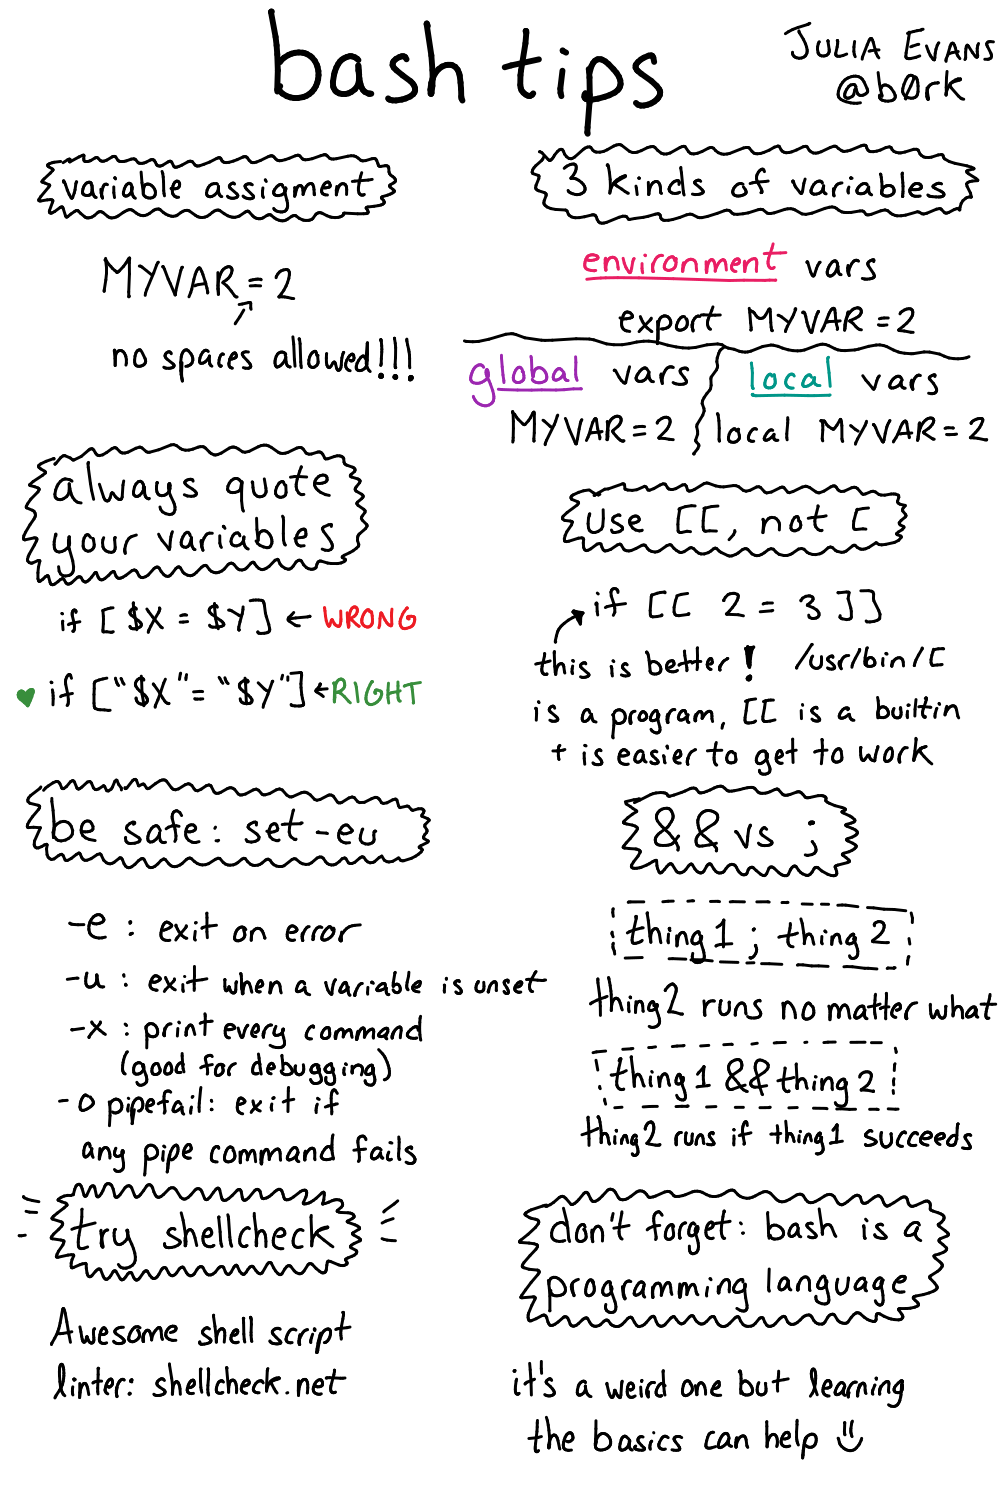 bash tips
JULIA EVANS
@b0rk
variable assigment
MYVAR=2
no spaces allowed!!!
3 kinds of variables
environment vars
export MYVAR=2
global vars
MYVAR=2
local vars
local MYVAR=2
always quote
your variables
if [ $X = $Y] ← WRONG
♥ if ["$X"= "$Y"] ← RIGHT
Use [[, not [
if [[ 2 = 3 ]]
this is better! /usr/bin/[
is a program, [[ is a builtin
+ is easier to get to work
be safe: set -eu
-e : exit on error
-u : exit when a variable is unset
-x : print every command
(good for debugging)
-o pipefail: exit if
any pipe command fails
&& vs ;
thing1 ; thing2
thing2 runs no matter what
thing1 && thing2
thing2 runs if thing1 succeeds
try shellcheck
Awesome shell script
linter: shellcheck.net
don't forget: bash is a
programming language
it's a weird one but learning
the basics can help